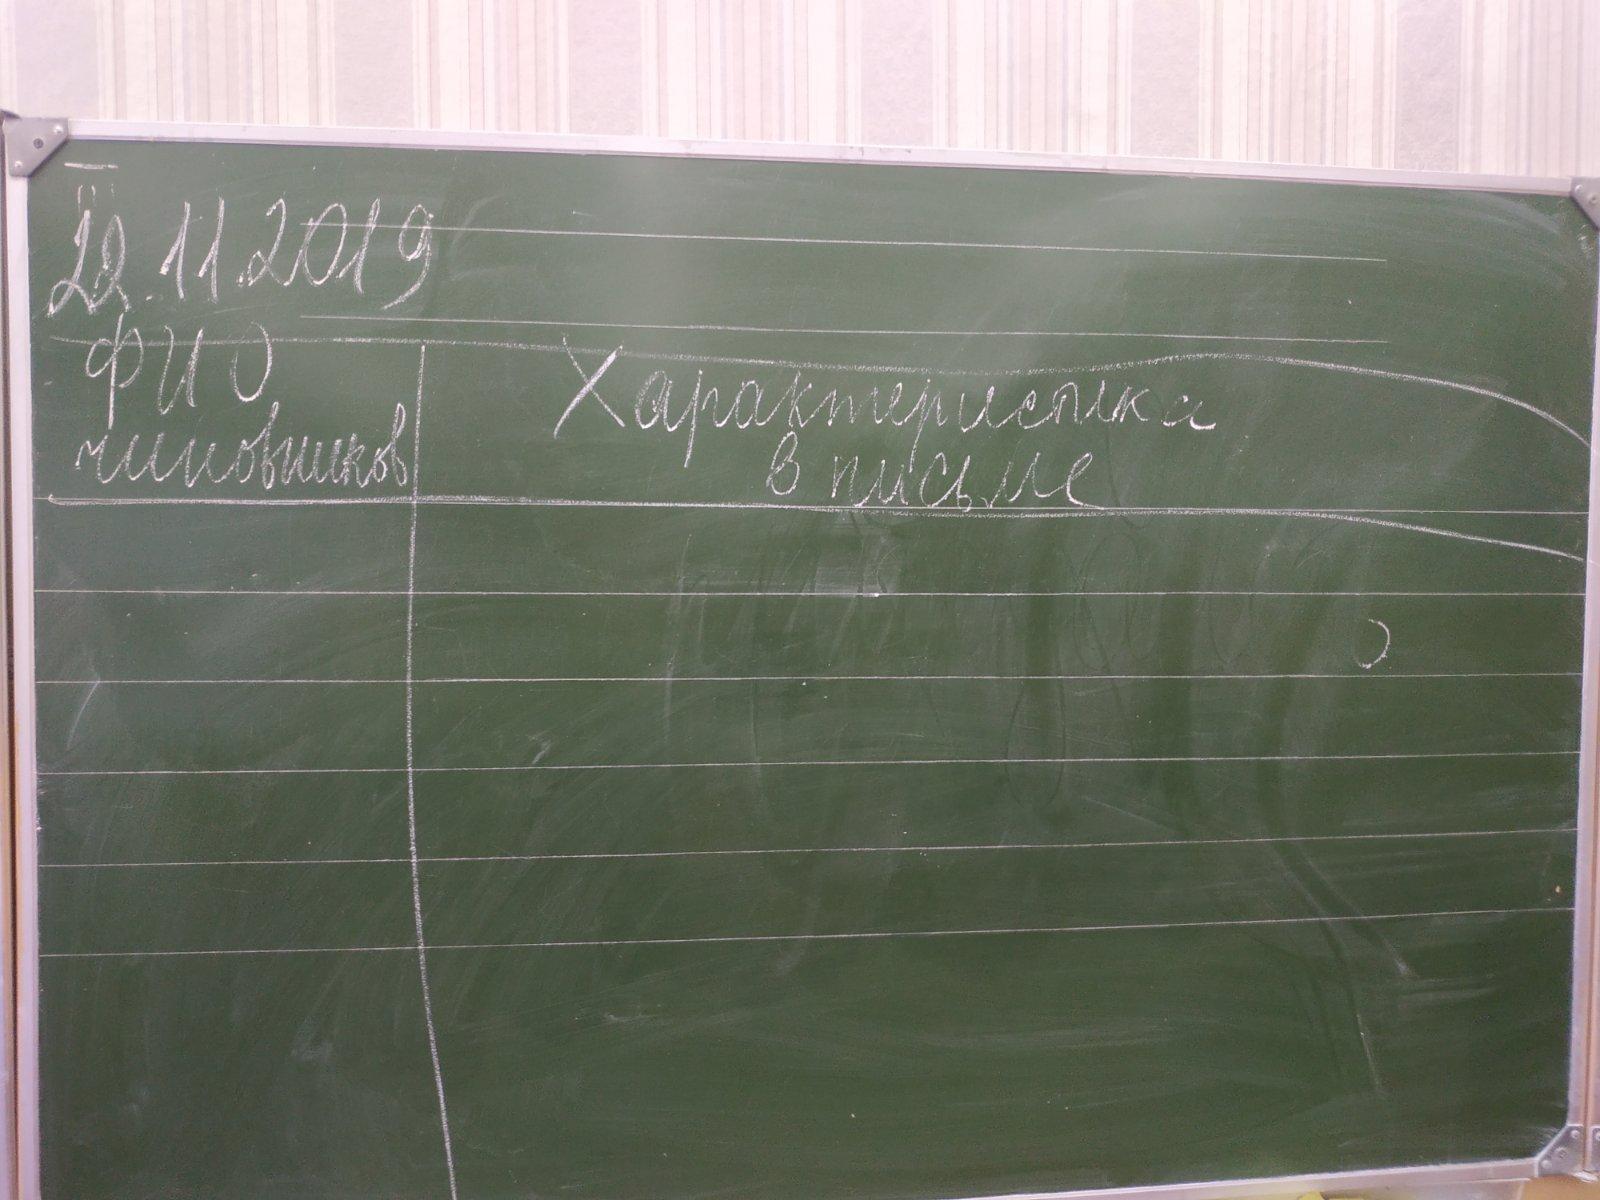 22.11.2019
ФИО
чиновников
Характеристика
в письме